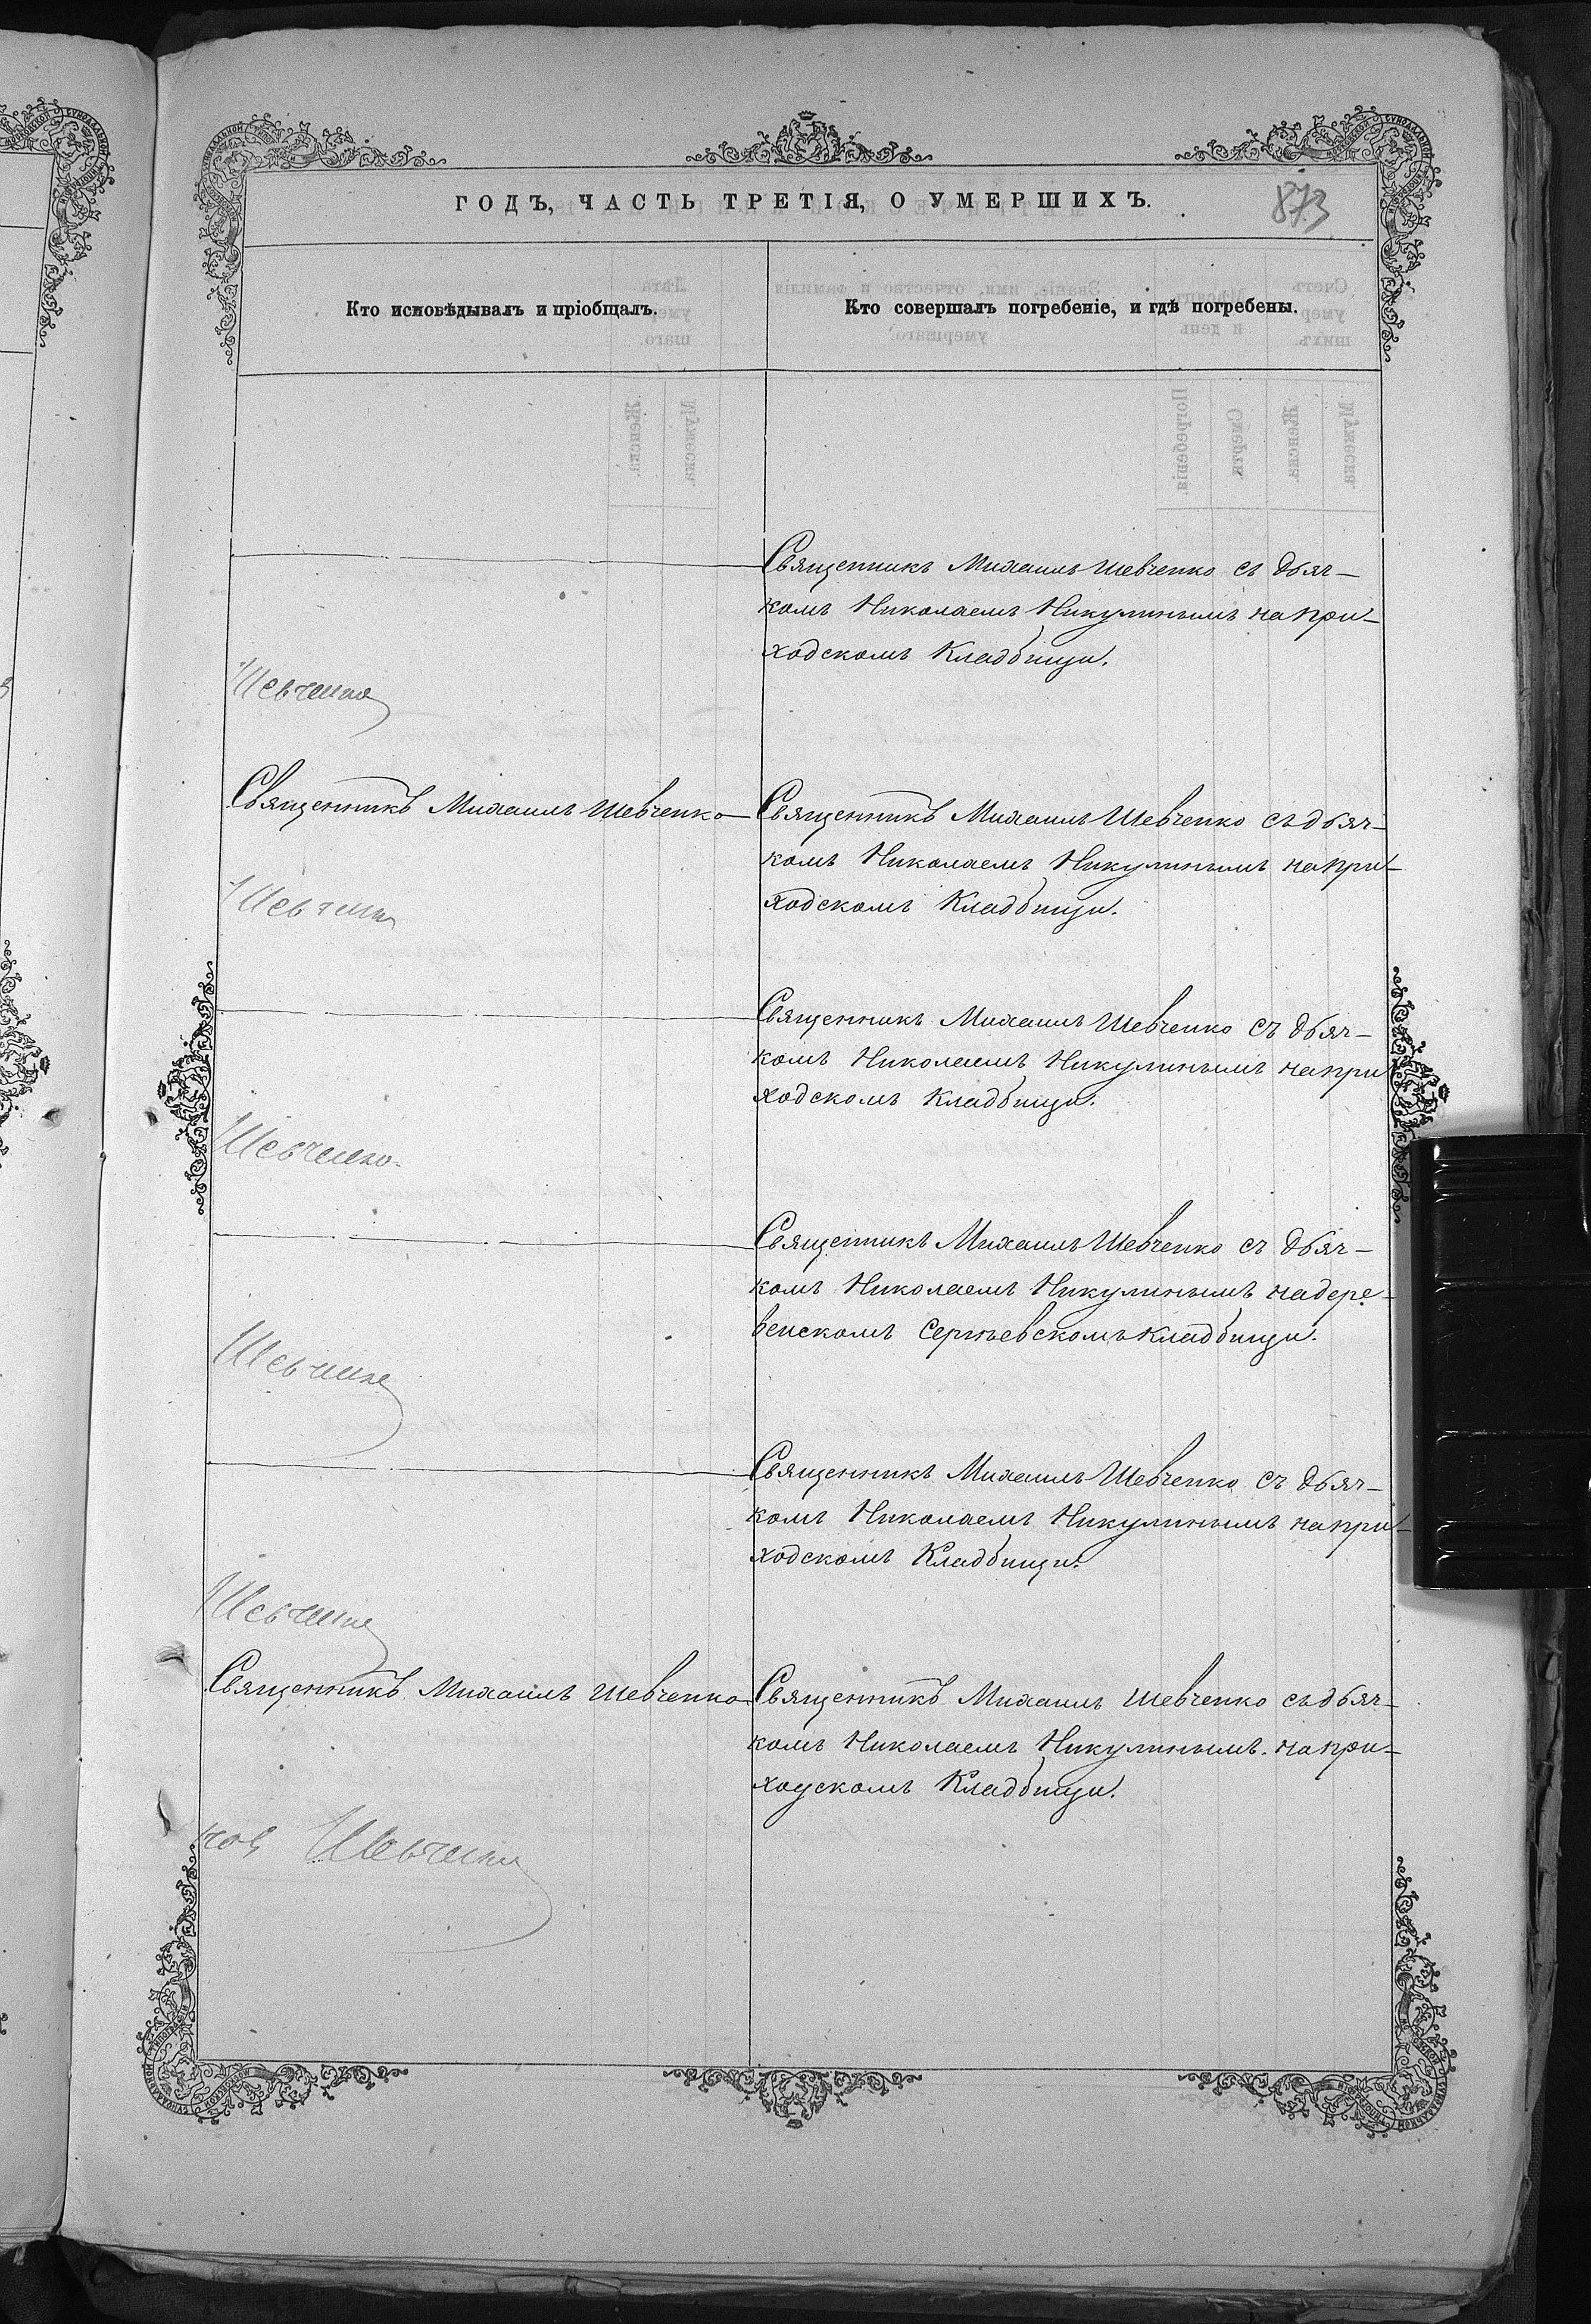 ГОДЪ, ЧАСТЬ ТРЕТІЯ, О УМЕРШИХЪ.
873
Кто исповѣдывалъ и пріобщалъ.
Кто совершалъ погребеніе, и гдѣ погребены.
Священникъ Михаилъ Шевченко съ дьяч-
комъ Николаемъ Никулинымъ на при-
ходскомъ Кладбищи.
Шевченко
Священникъ Михаилъ Шевченко
Священникъ Михаилъ Шевченко съ дьяч-
комъ Николаемъ Никулинымъ на при-
ходскомъ Кладбищи.
Шевченко
Священникъ Михаилъ Шевченко съ дьяч-
комъ Николаемъ Никулинымъ на при
ходскомъ Кладбищи.
Шевченко.
Священникъ Михаилъ Шевченко съ дьяч-
комъ Николаемъ Никулинымъ на дере-
венскомъ кладбищи.
Шевченко
Священникъ Михаилъ Шевченко съ дьяч-
комъ Николаемъ Никулинымъ на при-
ходскомъ Кладбищи.
Шевченко
Священникъ Михаилъ Шевченко
Священникъ Михаилъ Шевченко съ дьяч-
комъ Николаемъ Никулинымъ на при-
ходскомъ Кладбищи.
Шевченко